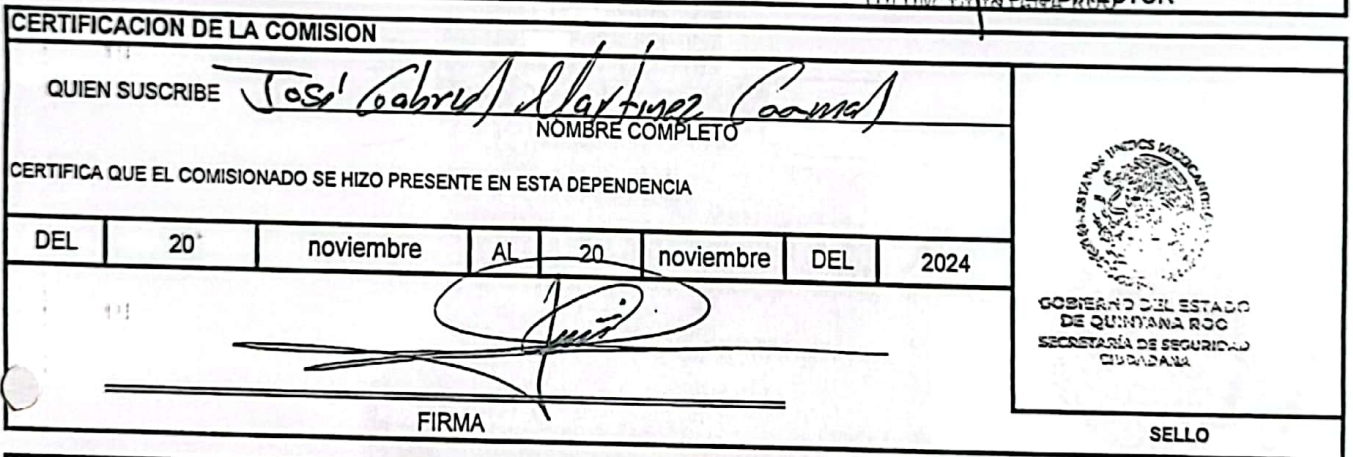 CERTIFICACION DE LA COMISION
QUIEN SUSCRIBE José Gabriel Martinez Caamal
NOMBRE COMPLETO
CERTIFICA QUE EL COMISIONADO SE HIZO PRESENTE EN ESTA DEPENDENCIA
DEL 20 noviembre AL 20 noviembre DEL 2024
ESTADOS UNIDOS MEXICANOS
GOBIERNO DEL ESTADO
DE QUINTANA ROO
SECRETARÍA DE SEGURIDAD
CIUDADANA
FIRMA
SELLO